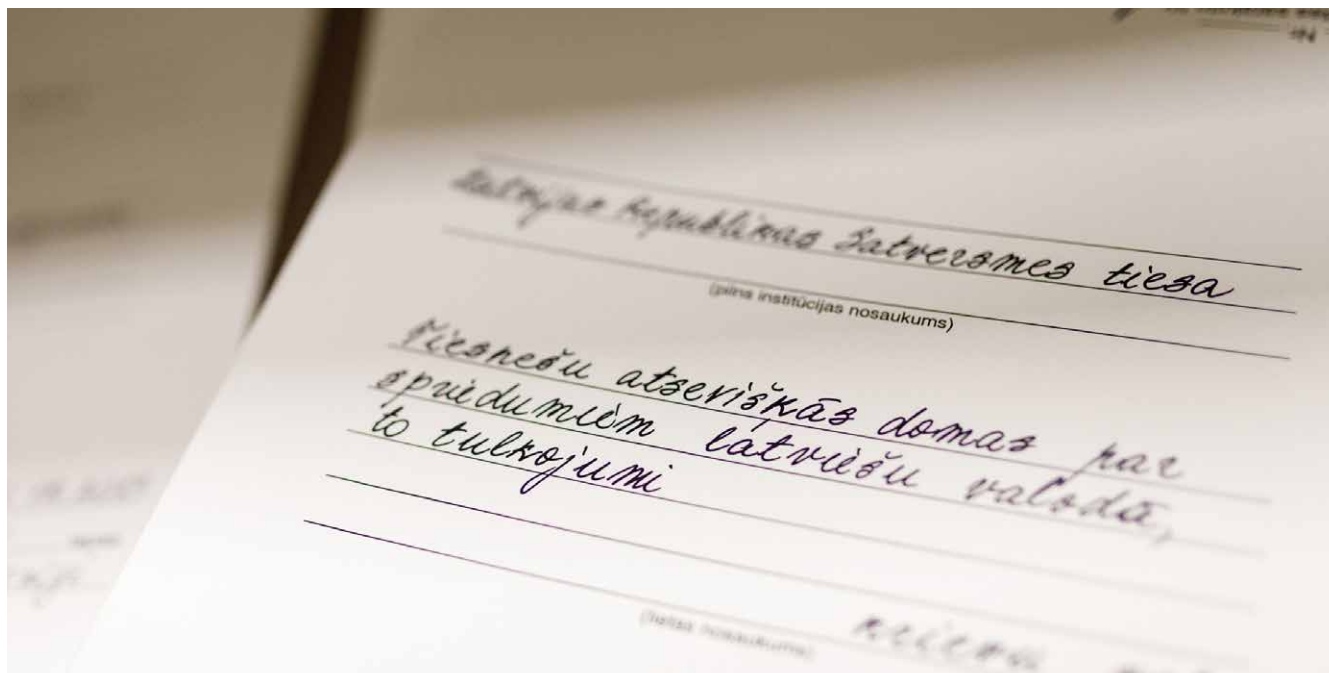 Latvijas Republikas Satversmes tiesa
(pilna institūcijas nosaukums)
Tiesnešu atsevišķās domas par
spriedumiem latviešu valodā,
to tulkojumi
(lietas nosaukums)